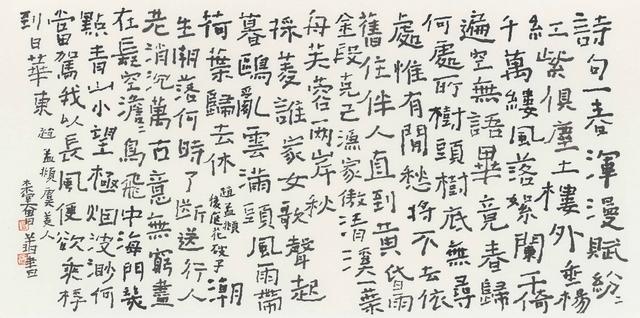 詩句一春渾漫賦紛〻
紅紫俱塵土樓外垂楊
千萬縷風落絮闌干倚
遍空無語畢竟春歸
何處所樹頭樹底無尋
處惟有閒愁將不去依
舊住伴人直到黃昏雨
金段克己漁家傲清溪一葉
舟芙蓉兩岸秋
採菱誰家女歌聲起
暮鷗亂雲滿頭風雨帶
荷葉歸去休趙孟頫後庭花破子潮
生潮落何時了斷送行人
老消沉萬古意無窮盡
在長空澹〻鳥飛中海門幾
點青山小望極烟波渺何
當駕我以長風便欲乘桴
到日華東趙孟頫虞美人